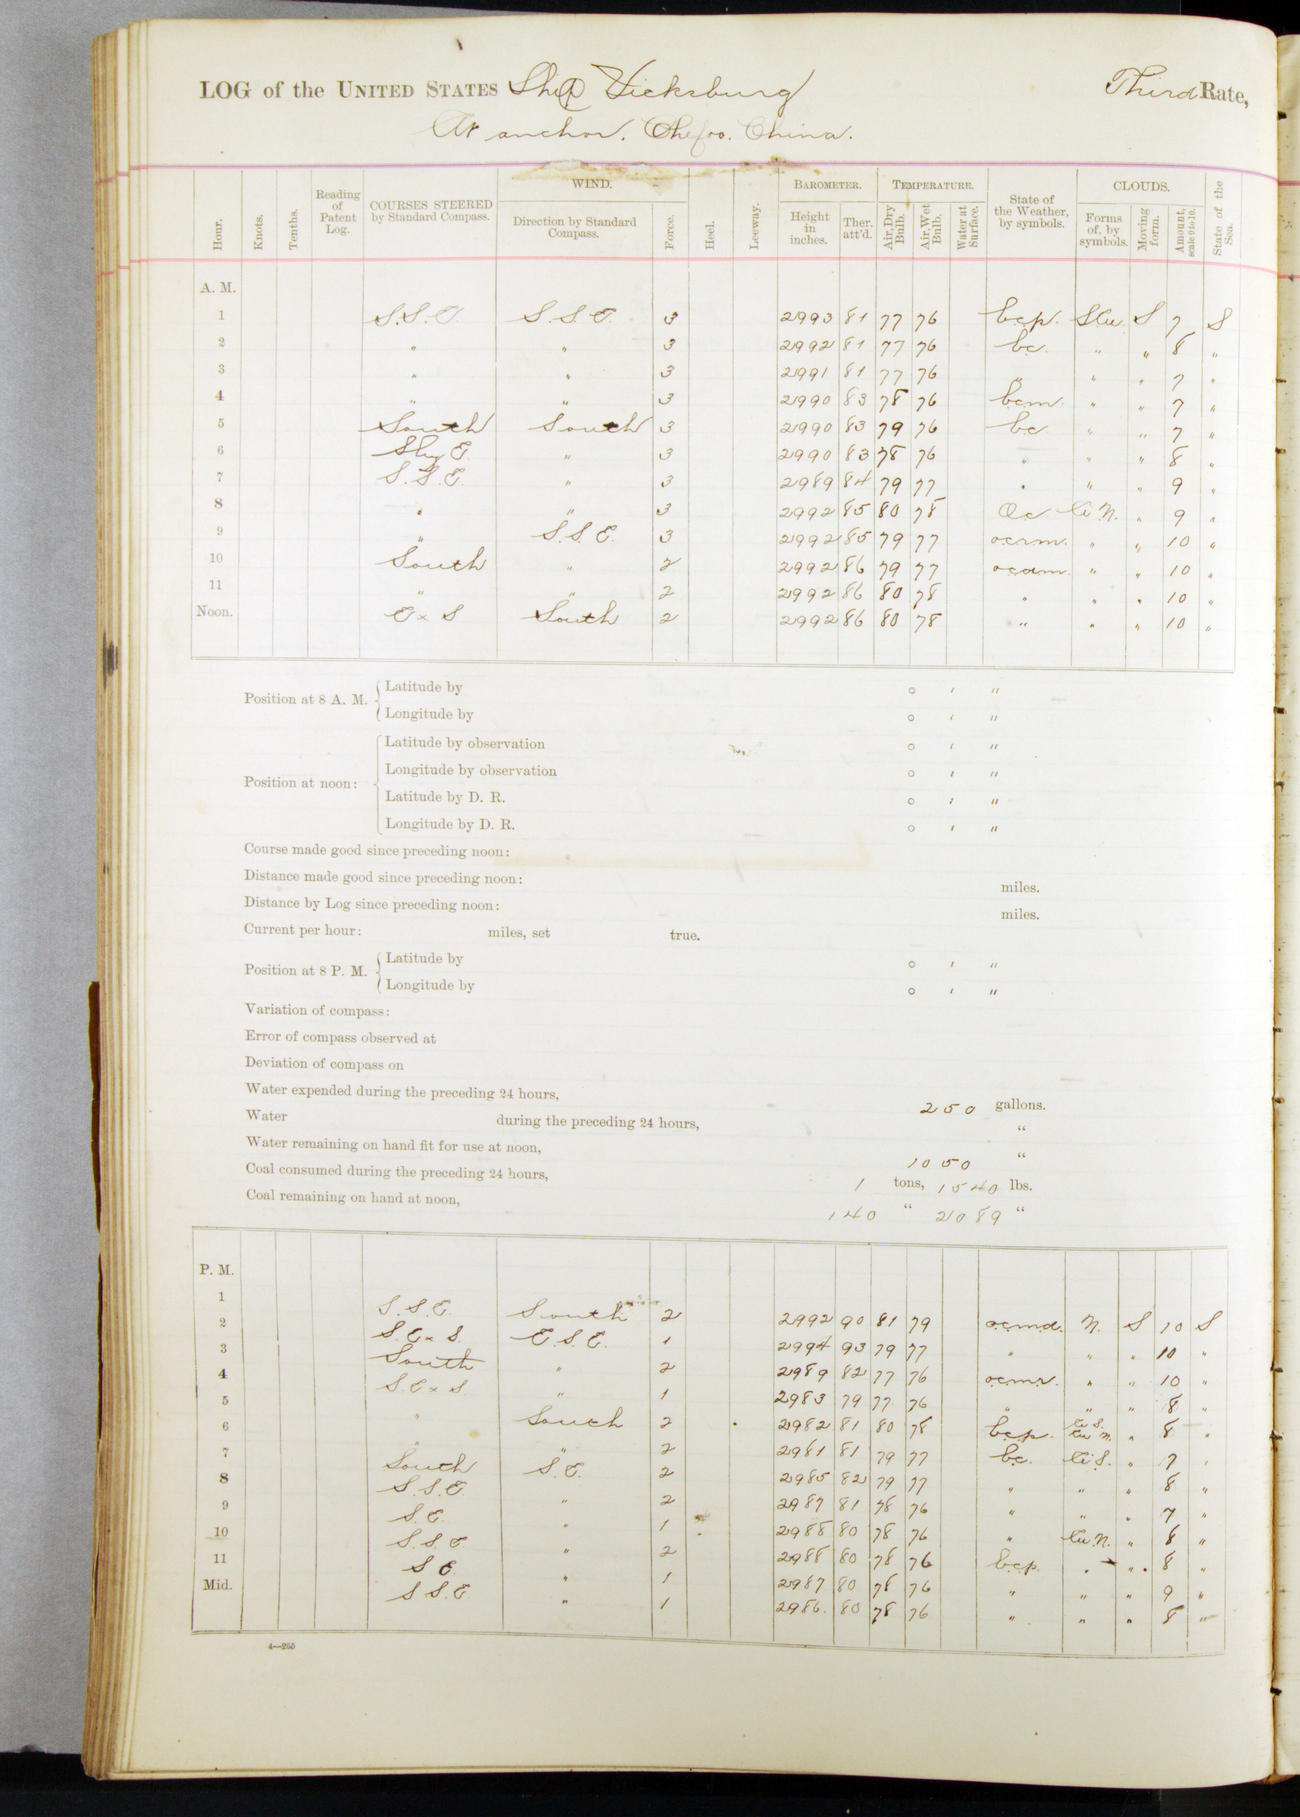 LOG of the UNITED STATES Ship Vicksburg Third Rate,
At anchor. Chefoo. China.
Hour. Knots. Tenths. Reading of Patent Log. COURSES STEERED by Standard Compass. WIND. Direction by Standard Compass. Force. Heel. Leeway. BAROMETER. Height in inches. Ther. att'd. TEMPERATURE. Air, Dry Bulb. Air, Wet Bulb. Water at Surface. State of the Weather, by symbols. CLOUDS. Forms of, by symbols. Moving form. Amount, scale 0 to 10. State of the Sea.
A. M.
1 S.S.E. S.S.E. 3 2993 81 77 76 bcp. SCu S 7 S
2 " " 3 2992 81 77 76 bc. " " 8 "
3 " " 3 2991 81 77 76 " " " 7 "
4 " " 3 2990 83 78 76 bcm. " " 7 "
5 South South 3 2990 83 79 76 bc " " 7 "
6 SbyE. " 3 2990 83 78 76 " " " 8 "
7 S.S.E. " 3 2989 84 79 77 " " " 9 "
8 " " 3 2992 85 80 78 Oc Ci N. " 9 "
9 " S.S.E. 3 2992 85 79 77 ocrm. " " 10 "
10 South " 2 2992 86 79 77 ocdm. " " 10 "
11 " " 2 2992 86 80 78 " " " 10 "
Noon. E x S South 2 2992 86 80 78 " " " 10 "
Position at 8 A. M. { Latitude by ° ′ ″
Longitude by ° ′ ″
Position at noon: { Latitude by observation ° ′ ″
Longitude by observation ° ′ ″
Latitude by D. R. ° ′ ″
Longitude by D. R. ° ′ ″
Course made good since preceding noon:
Distance made good since preceding noon: miles.
Distance by Log since preceding noon: miles.
Current per hour: miles, set true.
Position at 8 P. M. { Latitude by ° ′ ″
Longitude by ° ′ ″
Variation of compass:
Error of compass observed at
Deviation of compass on
Water expended during the preceding 24 hours, 250 gallons.
Water during the preceding 24 hours, "
Water remaining on hand fit for use at noon, 1050 "
Coal consumed during the preceding 24 hours, 1 tons, 1540 lbs.
Coal remaining on hand at noon, 140 " 2089 "
P. M.
1 S.S.E. South 2 2992 90 81 79 ocmd. N. S 10 S
2 S.E x S. E.S.E. 1 2994 93 79 77 " " " 10 "
3 South " 2 2989 82 77 76 ocmr. " " 10 "
4 S.E x S " 1 2983 79 77 76 " " " 8 "
5 " South 2 2982 81 80 78 bcp. Ci S. Cu N. " 8 "
6 " " 2 2981 81 79 77 bc. Ci S. " 7 "
7 South S.E. 2 2985 82 79 77 " " " 8 "
8 S.S.E. " 2 2987 81 78 76 " " " 7 "
9 S.E. " 1 2988 80 78 76 " Cu N. " 8 "
10 S.S.E " 2 2988 80 78 76 bcp. " " 8 "
11 S E. " 1 2987 80 78 76 " " " 9 "
Mid. S S.E. " 1 2986. 80 78 76 " " " 8 "
4—265